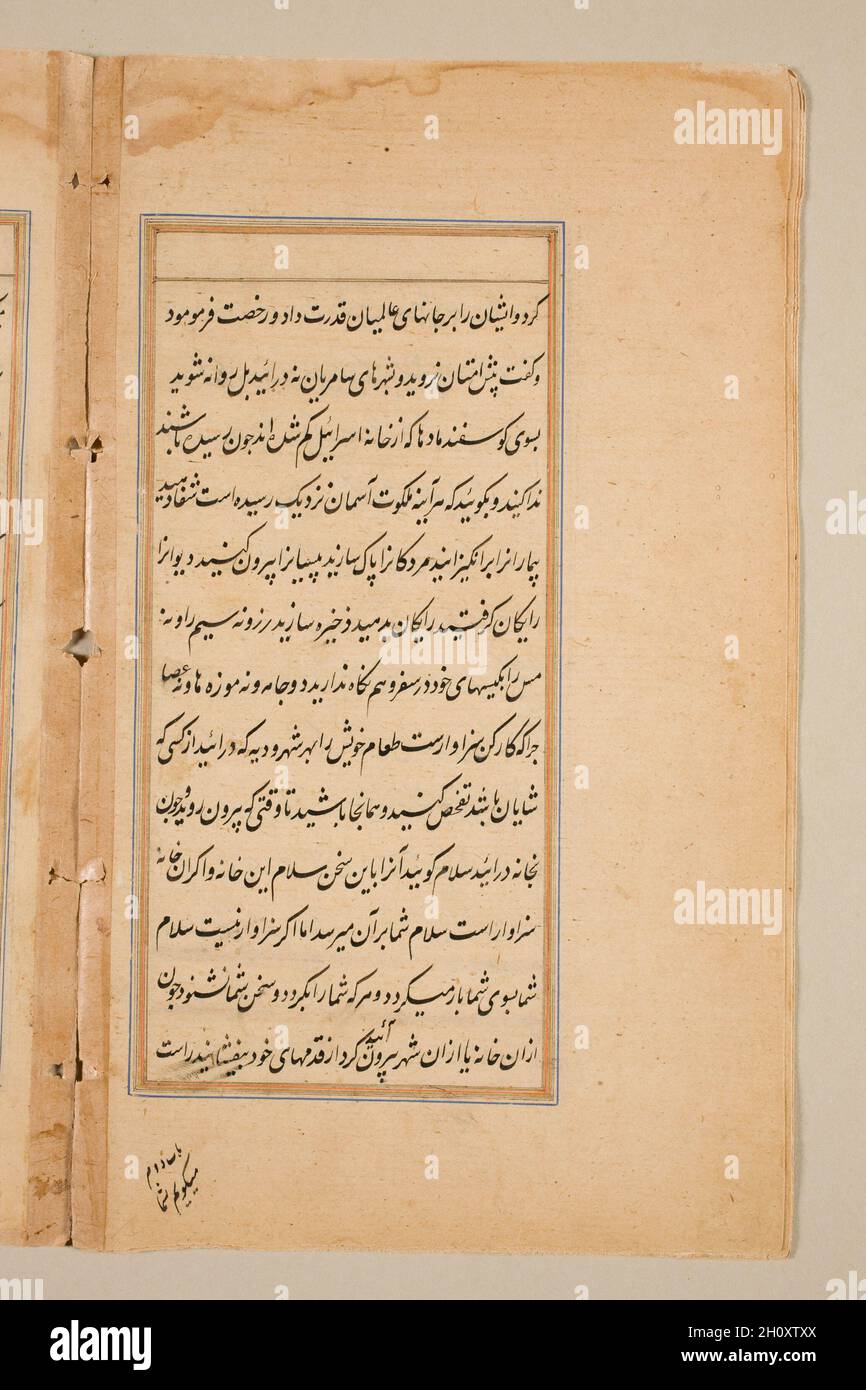 کرد و ایشان را بر جانهای عالمیان قدرت داد و رخصت فرمومود
و کفت پیش امتان نروید و شهرهای سامریان نه درائید بل روانه شوید
بسوی کوسفند مادها که از خانه اسرائیل کم شده اند جون رسیده باشند
ندا کنید و بکوئید که هر آینه ملکوت آسمان نزدیک رسیده است شفا دهید
بیمارانرا برانکیزانید مردکانرا پاک سازید پیسیانرا بیرون کنید دیوانرا
رایکان کرفتید رایکان بدهید ذخیره سازید زر و نه سیم را و نه
مس را بکیسهای خود در سفر و هم نکاه ندارید دو جامه و نه موزه ها و نه عصا
جرا که کارکن سزاوارست طعام خویش را بهر شهر و دیه که درائید از کسی که
شایان باشد تفحص کنید و همانجا باشید تا وقتی که بیرون روید و جون
بخانه درائید سلام کوئید آنرا باین سخن سلام این خانه و اکر آن خانه
سزاوار است سلام شما بر آن میرسد اما اکر سزاوار نیست سلام
شما بسوی شما باز میکردد و هر که شما را نکیردد و سخن شما نشنود جون
ازان خانه یا ازان شهر بیرون آئید کرد از قدمهای خود بیفشانید راست
میکویم شما
alamy
Image ID: 2H0XTXX
www.alamy.com